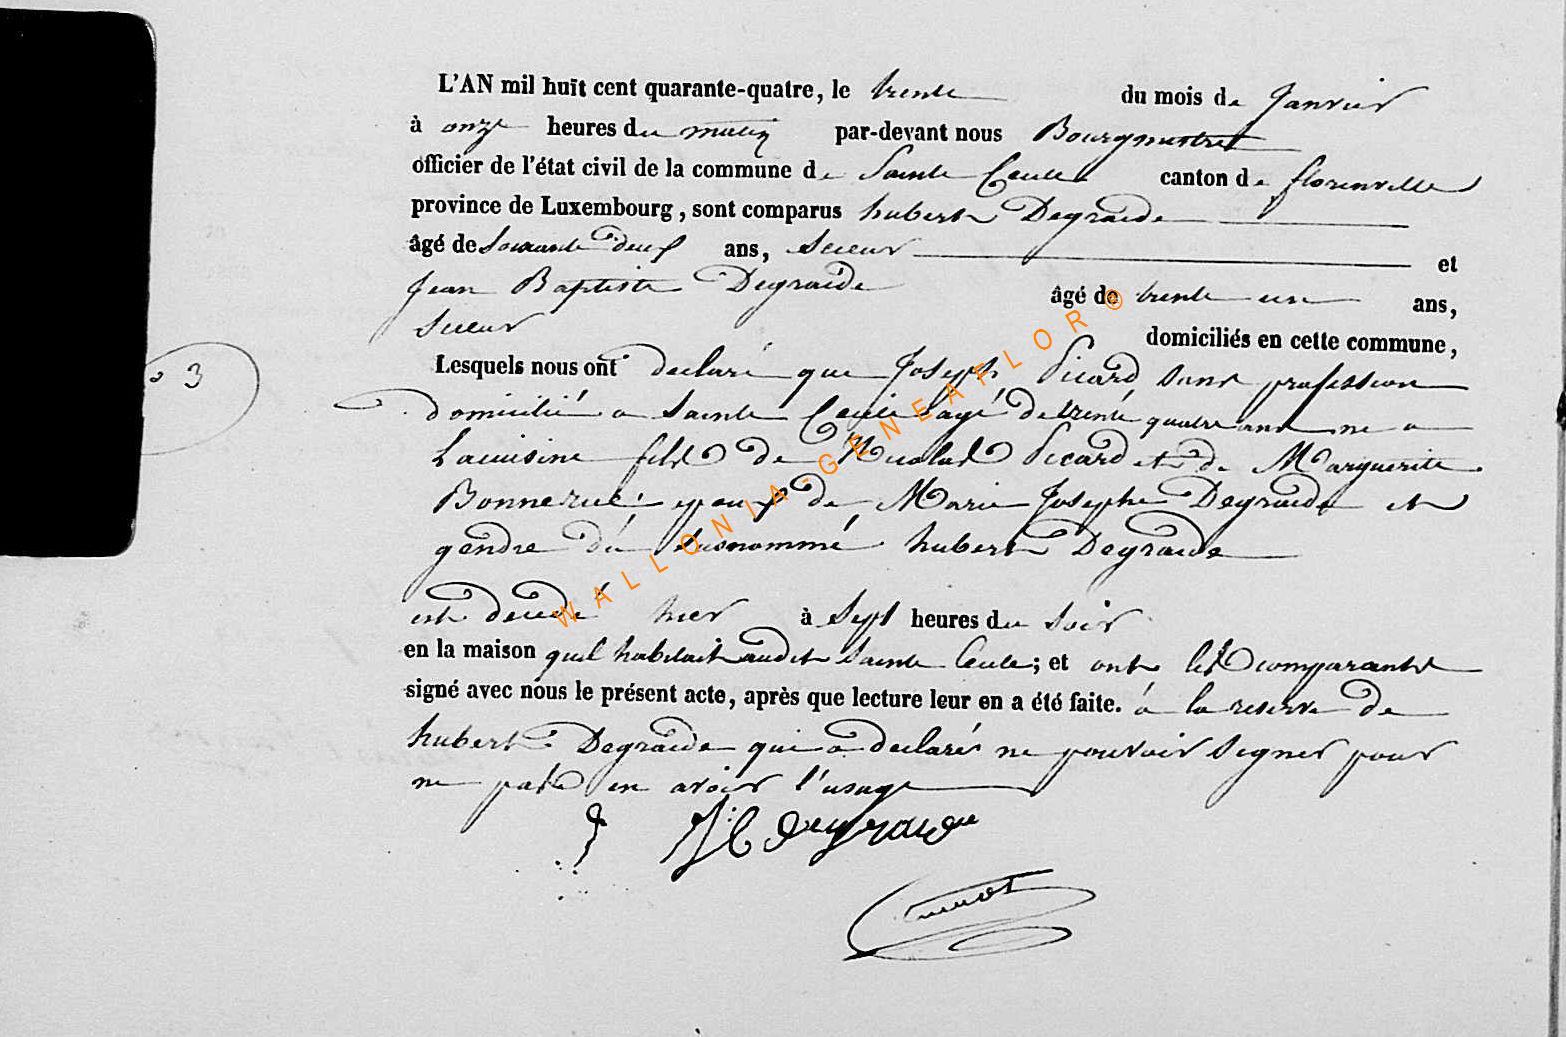 L'AN mil huit cent quarante-quatre, le trente du mois de Janvier
à onze heures du matin par-devant nous Bourgmestre
officier de l'état civil de la commune de Sainte Cecile canton de florenville
province de Luxembourg, sont comparus hubert Degraide
âgé de Soixante deux ans, Scieur et
Jean Baptiste Degraide âgé de trente un ans,
Scieur domiciliés en cette commune,
3
Lesquels nous ont declaré que Joseph Picard sans profession
domicilié a Sainte Cecile agé de trente quatre ans né a
Lacuisine fils de Nicolas Picard et de Marguerite
Bonnerue epoux de Marie Josephe Degraide et
gendre du susnommé hubert Degraide
est decedé hier à Sept heures du Soir
en la maison quil habitait audit Sainte Cecile; et ont les comparants
signé avec nous le présent acte, après que lecture leur en a été faite. á la reserve de
hubert Degraide qui a declaré ne pouvoir Signer pour
ne pas en avoir l'usage
J B degraide
WALLONIA-GENEAFLOR©